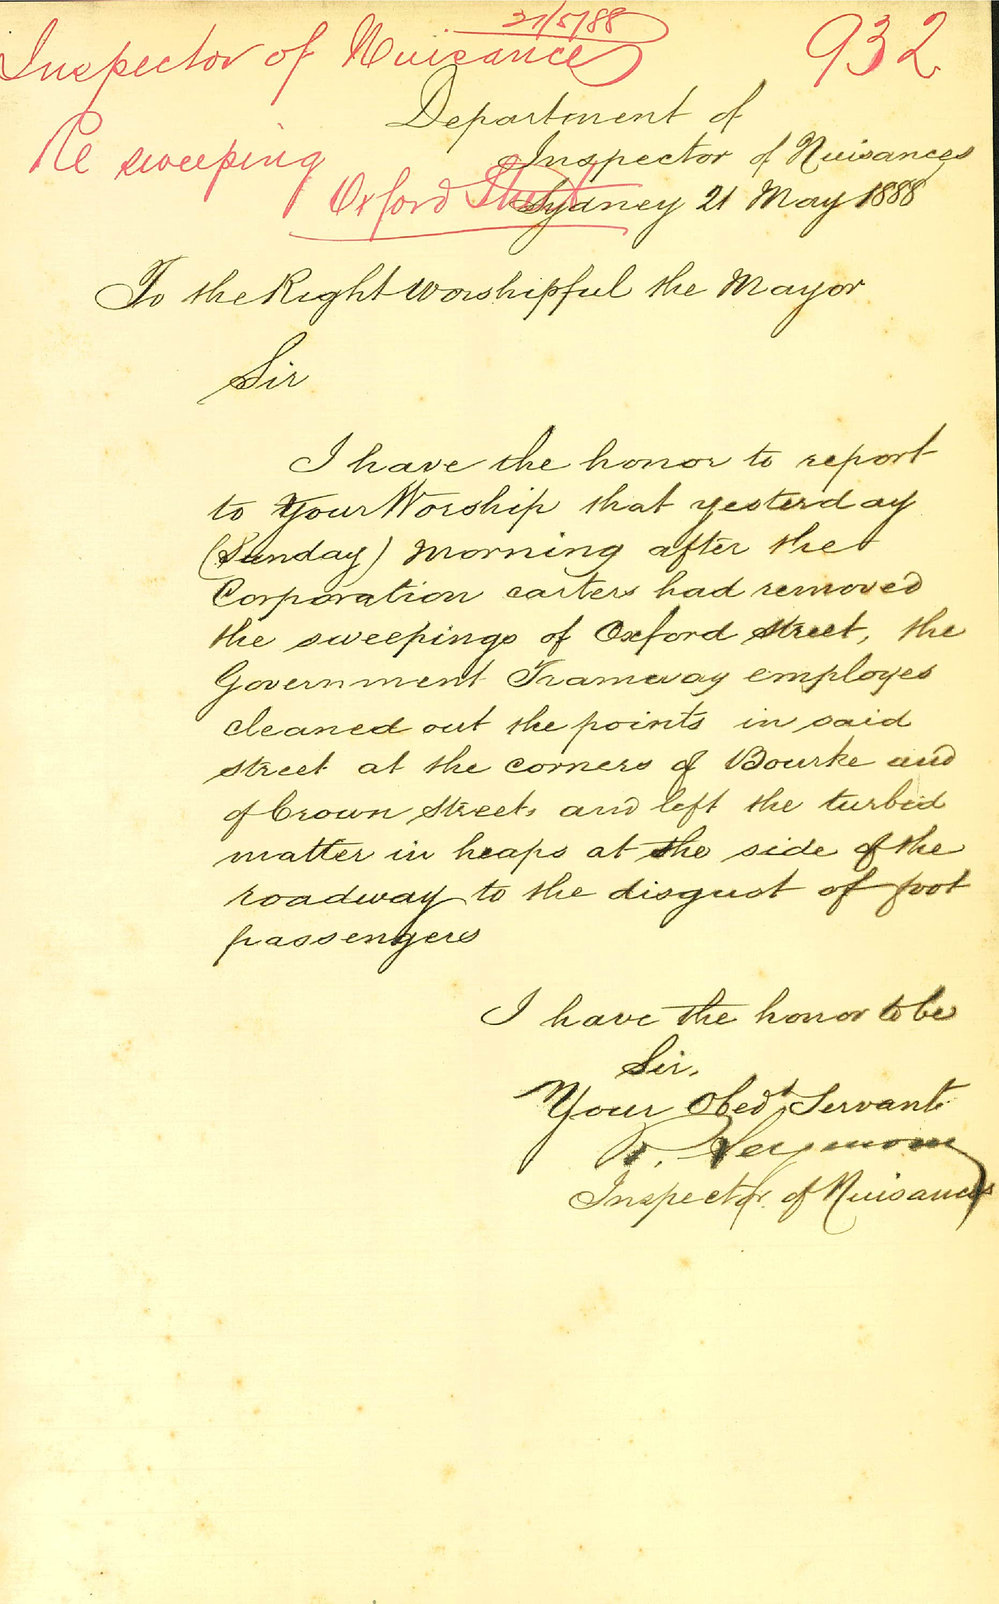 21/5/88
Inspector of Nuisances
932
Re sweeping
Oxford Street
Department of
Inspector of Nuisances
Sydney 21 May 1888
To the Right Worshipful the Mayor
Sir
I have the honor to report
to Your Worship that yesterday
(Sunday) morning after the
Corporation carters had removed
the sweepings of Oxford street, the
Government Tramway employes
cleaned out the points in said
street at the corners of Bourke and
of Crown Streets and left the turbed
matter in heaps at the side of the
roadway to the disgust of foot
passengers
I have the honor to be
Sir,
Your Obedt Servant
R. Seymour
Inspector of Nuisances